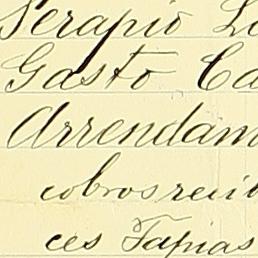 Serapio Lo
Gasto Ca
Arrendam
cobros recib
ces Tapias